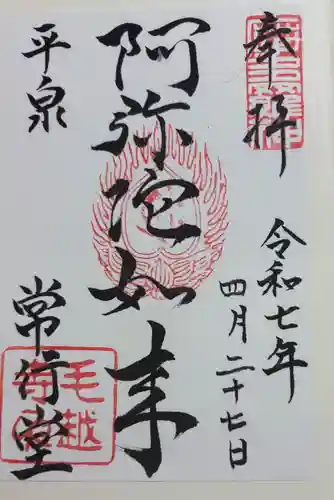 奉拝
令和七年
四月二十七日
阿弥陀如来
平泉
常行堂
毛越寺